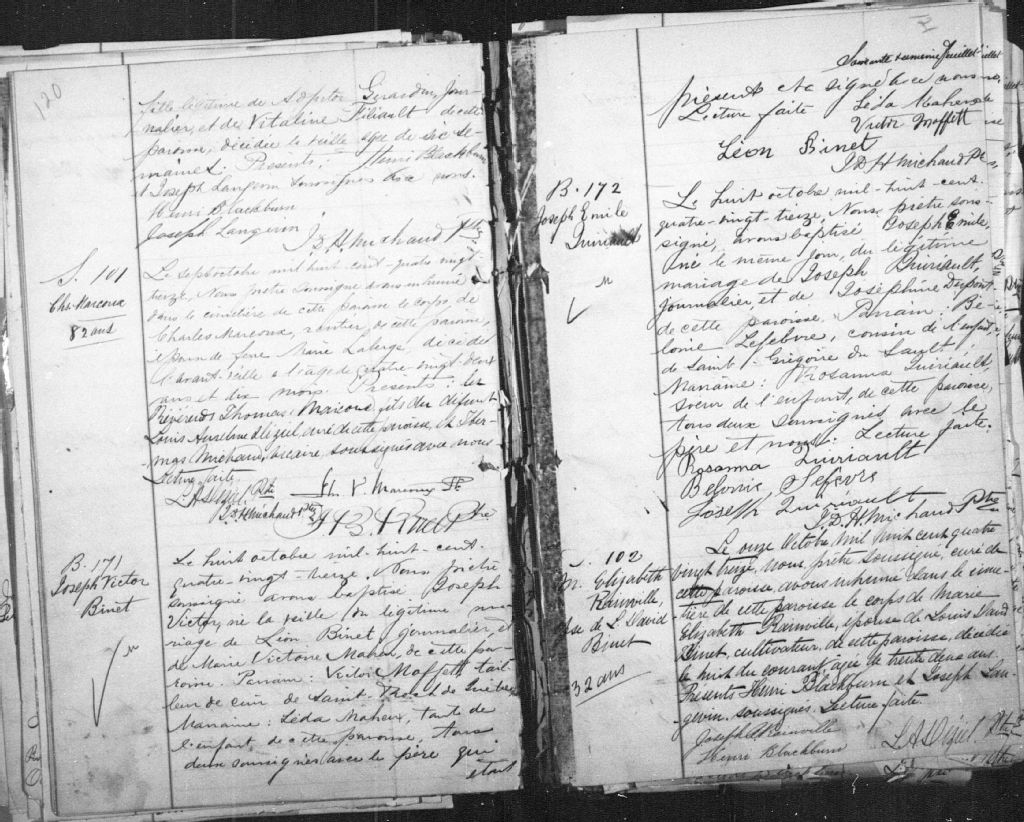 120
fille légitime de Girardin, jour-
nalier, et de Vitaline Filiault de cette
paroisse, décédée la veille âgée de six se-
maines. Présents: Henri Blackburn
et Joseph Langevin soussignés avec nous.
Henri Blackburn
Joseph Langevin
J. D. H. Michaud Ptre
S. 101
Chs. Marcoux
82 ans
Le sept octobre mil huit cent quatre vingt
treize, Nous prêtre soussigné avons inhumé
dans le cimetière de cette paroisse le corps de
Charles Marcoux, rentier de cette paroisse,
époux de feue Marie Laberge, décédé
l'avant-veille à l'âge de quatre-vingt-deux
ans et dix mois. Présents: les
Révérends Thomas Marcoux, fils du défunt
Louis Anselme Déziel, curé de cette paroisse, &
Michaud, vicaire, soussignés avec nous
Lecture faite.
L A Déziel Ptre
J. D. H. Michaud Ptre
B. 171
Joseph Victor
Binet
Le huit octobre mil-huit-cent-
quatre-vingt-treize, Nous prêtre
soussigné avons baptisé Joseph
Victor, né la veille du légitime ma-
riage de Léon Binet, journalier, et
de Marie Victoire Maheu, de cette pa-
roisse. Parrain: Victor Moffett, tail-
leur de cuir de Saint- de Québec
Marraine: Léda Maheux, tante de
l'enfant, de cette paroisse, tous
deux soussignés avec le père qui
étant
Soixante & onzième feuillet
présent et a signé avec nous.
Lecture faite Léda Maheux
Victor Moffett
Léon Binet
J. D. H. Michaud Ptre
B. 172
Joseph Emile
Quiriault
Le huit octobre mil-huit-cent-
quatre-vingt-treize, Nous prêtre sous-
signé, avons baptisé Joseph Emile,
né le même jour, du légitime
mariage de Joseph Quiriault,
journalier, et de Joséphine Dupont
de cette paroisse. Parrain: Be-
lonie Lefebvre, cousin de l'enfant,
de Saint-Grégoire du Sault;
Marraine: Rosanna Quiriault,
soeur de l'enfant, de cette paroisse,
tous deux soussignés avec le
père et nous. Lecture faite.
Rosanna Quiriault
Belonie Lefevre
Joseph Quiriault
J. D. H. Michaud Ptre
S. 102
M. Elizabeth
Rainville,
épse de L. David
Binet
32 ans
Le onze Octobre mil huit cent quatre
vingt treize, nous, prêtre soussigné, curé de
cette paroisse, avons inhumé dans le cime-
tière de cette paroisse le corps de Marie
Elizabeth Rainville, épouse de Louis David
Binet, cultivateur, de cette paroisse, décédée
le huit du courant, âgée de trente deux ans.
Présents Henri Blackburn et Joseph Lan-
gevin soussignés. Lecture faite.
Joseph Rainville
Henri Blackburn
L A Déziel Ptre